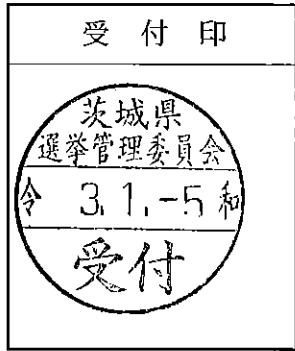 受付印
茨城県
選挙管理委員会
令 3.1.-5 和
受付